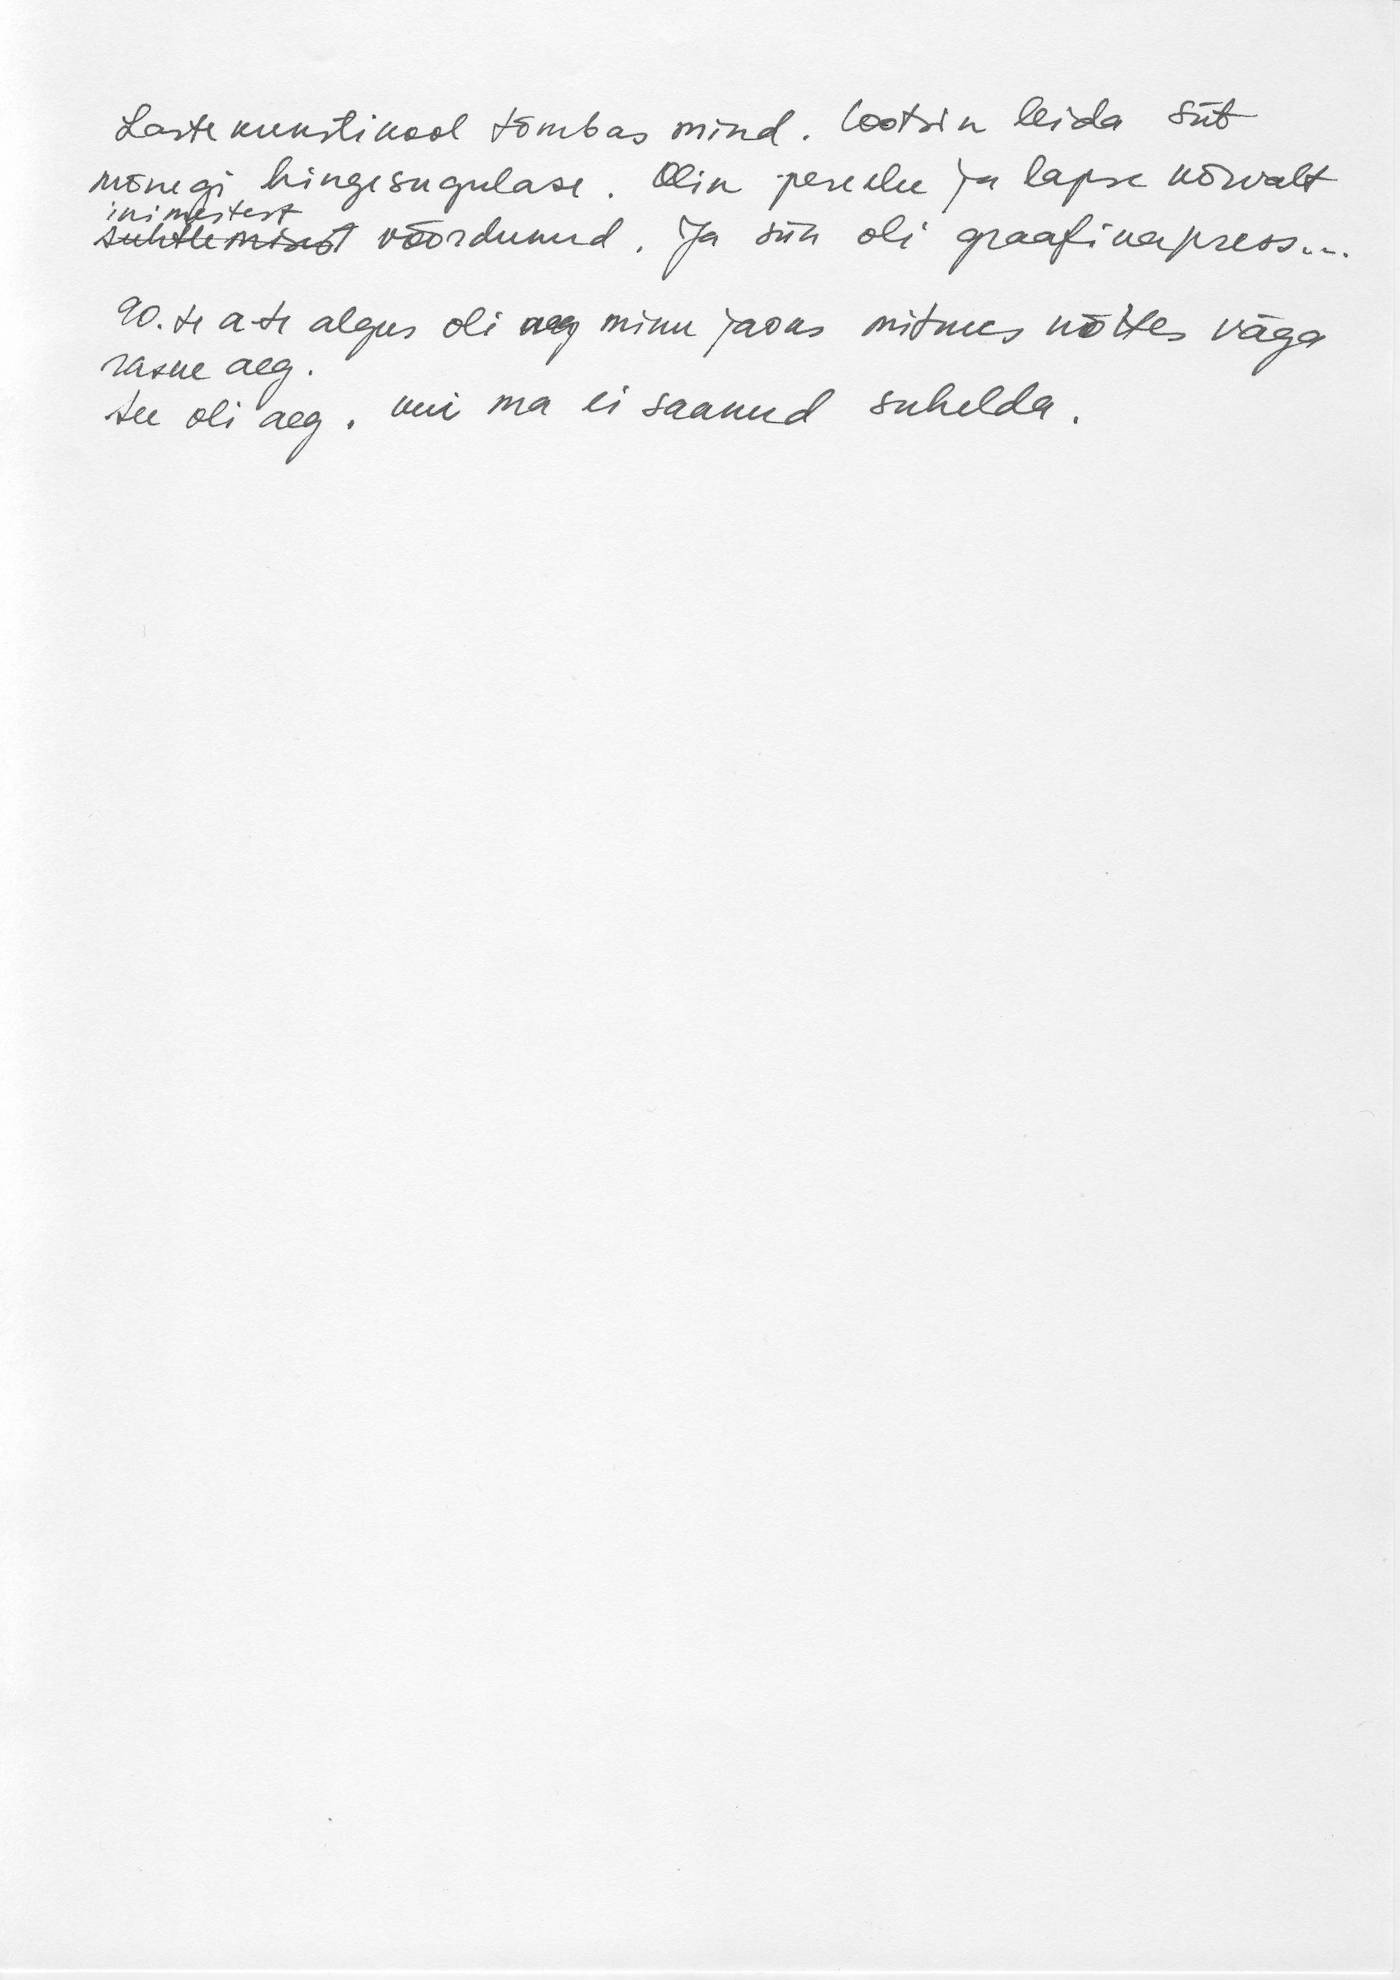 Lastekunstikool tõmbas mind. Lootsin leida siit
mõnegi hingesugulase. Olin pereelu ja lapse kõrvalt
inimestest
suhtlemisest võõrdunud. Ja siin oli graafikapress...
90.te a-te algus oli aeg minu jaoks mitmes mõttes väga
raske aeg.
See oli aeg, kui ma ei saanud suhelda.